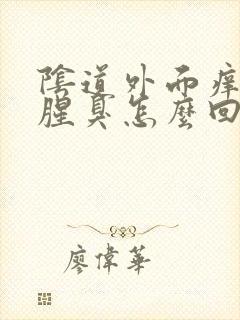 陰道外面痒
腥臭怎麼回
廖偉華